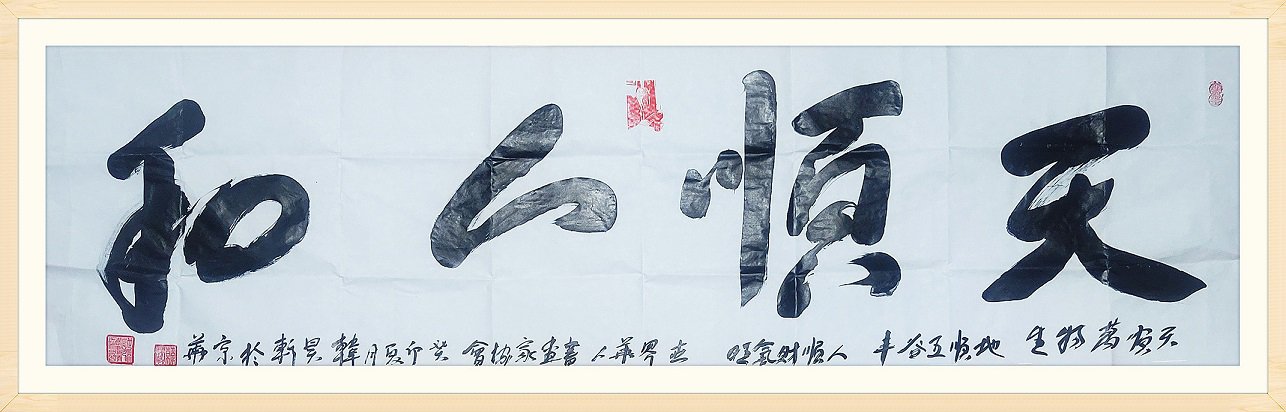 天順人和
天順萬物生 地順五谷丰 人順财氣旺 世界華人書畫家協會 癸卯夏月 韓昊軒於京華